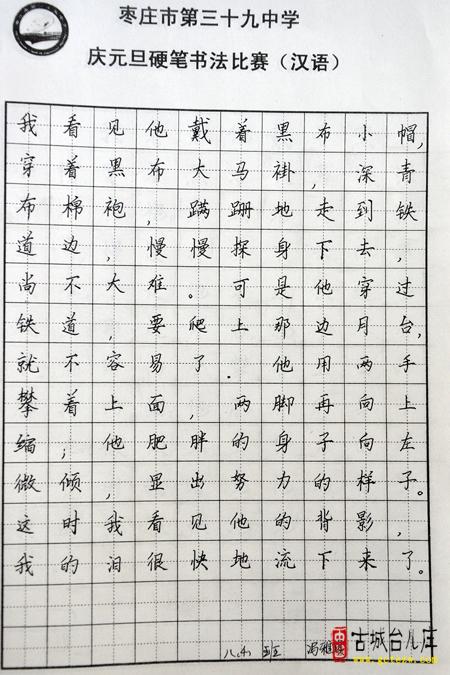 枣庄市第三十九中学
庆元旦硬笔书法比赛（汉语）
我看见他戴着黑布小帽，
穿着黑布大马褂，深青
布棉袍，蹒跚地走到铁
道边，慢慢探身下去，
尚不大难。可是他穿过
铁道，要爬上那边月台，
就不容易了．他用两手
攀着上面，两脚再向上
缩；他肥胖的身子向左
微倾，显出努力的样子。
这时我看见他的背影，
我的泪很快地流下来了。
八年 班 冯雅
古城台儿庄